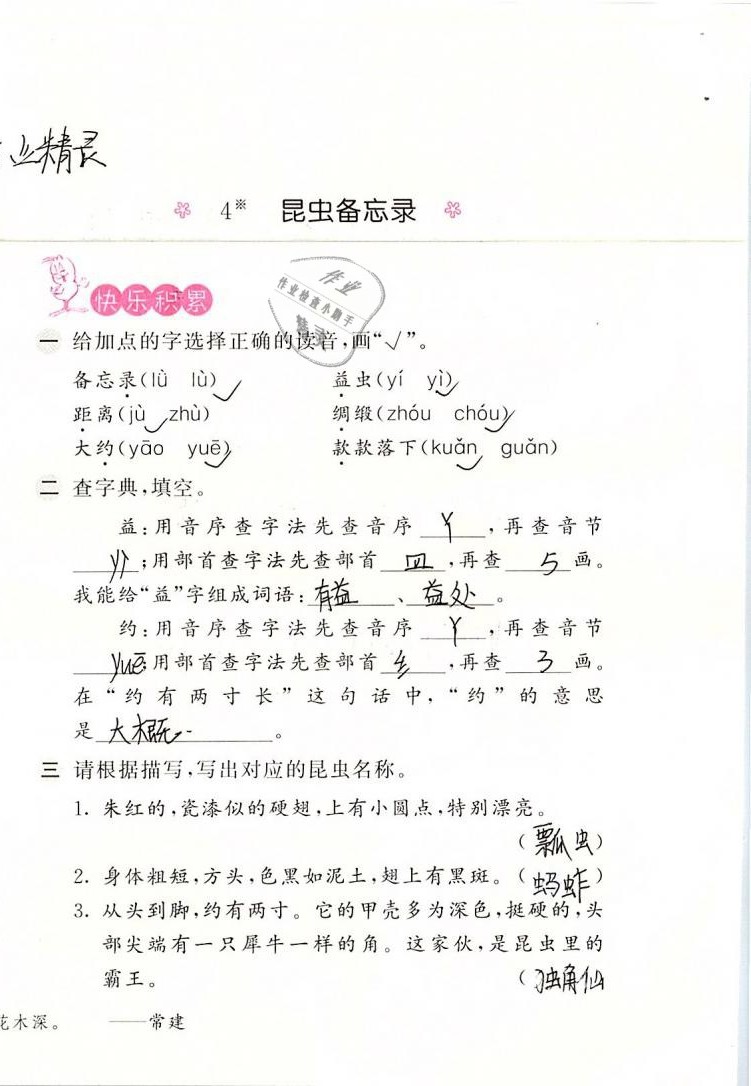 业精灵
4※ 昆虫备忘录
作业
作业检查小助手
快乐积累
一 给加点的字选择正确的读音,画“√”。
备忘录(lǜ lù)√ 益虫(yí yì)√
距离(jù√ zhù) 绸缎(zhóu chóu)√
大约(yāo yuē)√ 款款落下(kuǎn√ guǎn)
二 查字典,填空。
益:用音序查字法先查音序 Y ,再查音节
yì ;用部首查字法先查部首 皿 ,再查 5 画。
我能给“益”字组成词语: 有益 、 益处 。
约:用音序查字法先查音序 Y ,再查音节
yuē ;用部首查字法先查部首 纟 ,再查 3 画。
在“约有两寸长”这句话中,“约”的意思
是 大概 。
三 请根据描写,写出对应的昆虫名称。
1. 朱红的,瓷漆似的硬翅,上有小圆点,特别漂亮。
(瓢虫)
2. 身体粗短,方头,色黑如泥土,翅上有黑斑。(蚂蚱)
3. 从头到脚,约有两寸。它的甲壳多为深色,挺硬的,头
部尖端有一只犀牛一样的角。这家伙,是昆虫里的
霸王。 (独角仙
花木深。 ——常建